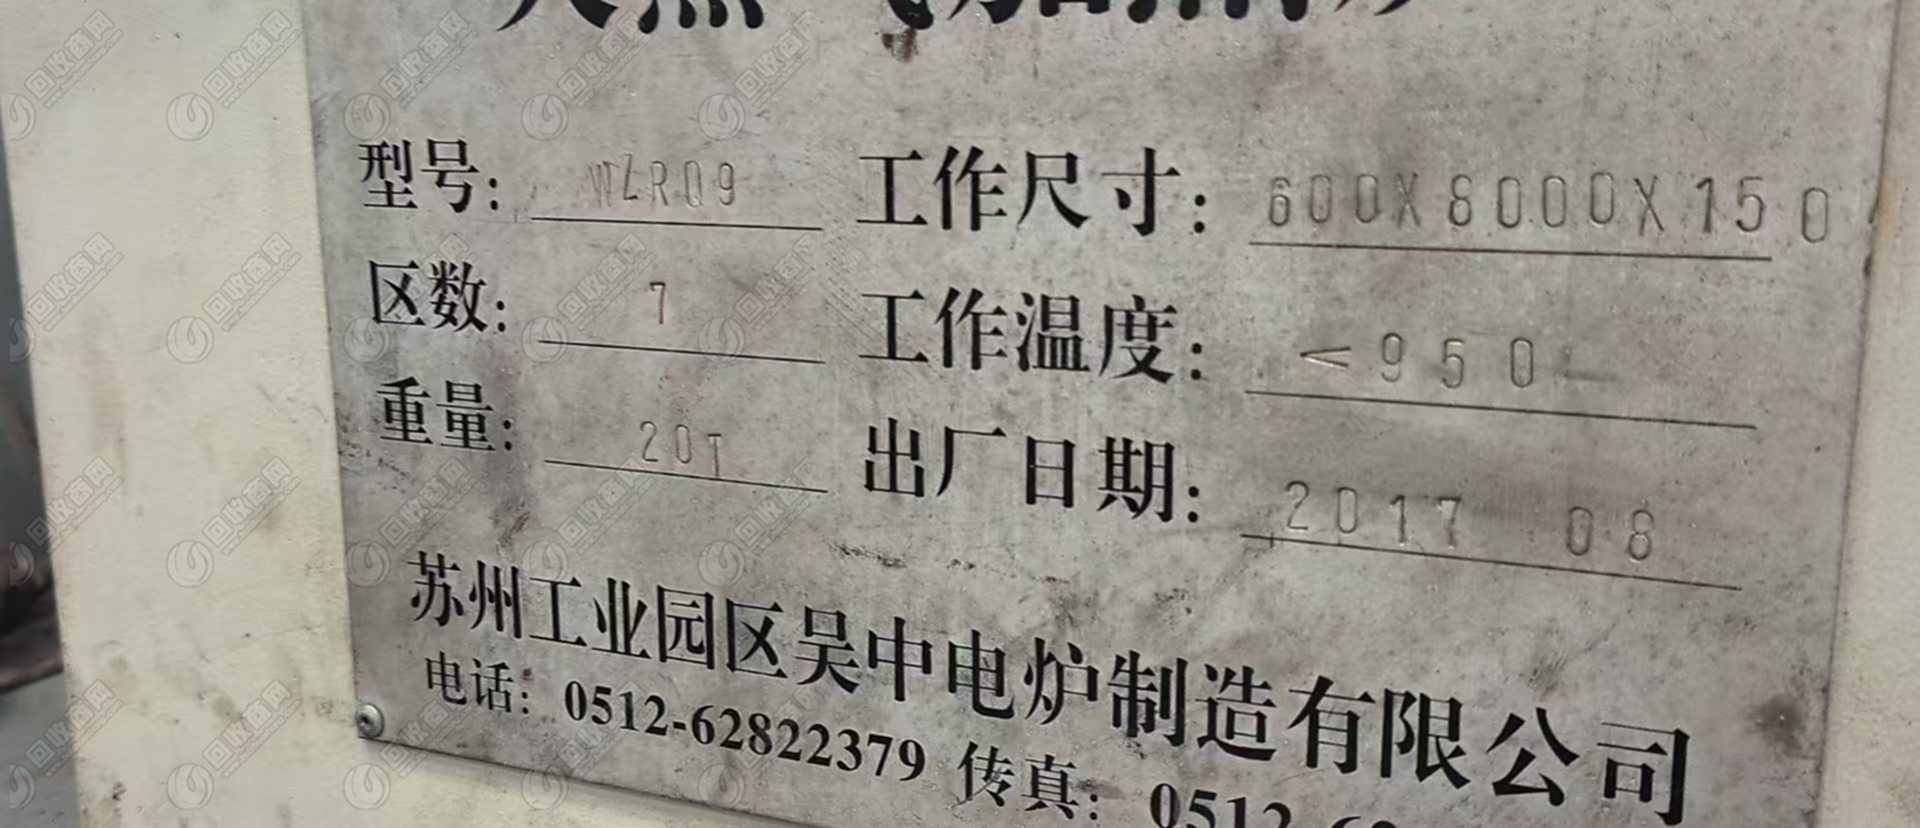 天然气加热炉
型号: WLRQ9 工作尺寸: 600X8000X150
区数: 7 工作温度: <950
重量: 20T 出厂日期: 2017 08
苏州工业园区吴中电炉制造有限公司
电话: 0512-62822379 传真: 0512-62
回收商网